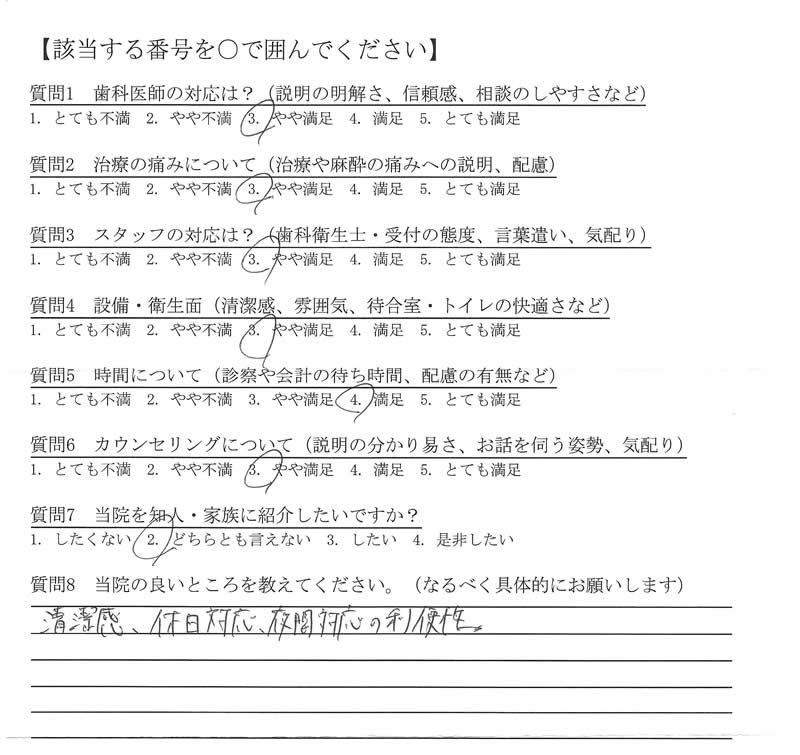 【該当する番号を○で囲んでください】
質問1 歯科医師の対応は？（説明の明解さ、信頼感、相談のしやすさなど）
1. とても不満 2. やや不満 3. やや満足 4. 満足 5. とても満足
質問2 治療の痛みについて（治療や麻酔の痛みへの説明、配慮）
1. とても不満 2. やや不満 3. やや満足 4. 満足 5. とても満足
質問3 スタッフの対応は？（歯科衛生士・受付の態度、言葉遣い、気配り）
1. とても不満 2. やや不満 3. やや満足 4. 満足 5. とても満足
質問4 設備・衛生面（清潔感、雰囲気、待合室・トイレの快適さなど）
1. とても不満 2. やや不満 3. やや満足 4. 満足 5. とても満足
質問5 時間について（診察や会計の待ち時間、配慮の有無など）
1. とても不満 2. やや不満 3. やや満足 4. 満足 5. とても満足
質問6 カウンセリングについて（説明の分かり易さ、お話を伺う姿勢、気配り）
1. とても不満 2. やや不満 3. やや満足 4. 満足 5. とても満足
質問7 当院を知人・家族に紹介したいですか？
1. したくない 2. どちらとも言えない 3. したい 4. 是非したい
質問8 当院の良いところを教えてください。（なるべく具体的にお願いします）
清潔感、休日対応、夜間対応の利便性。